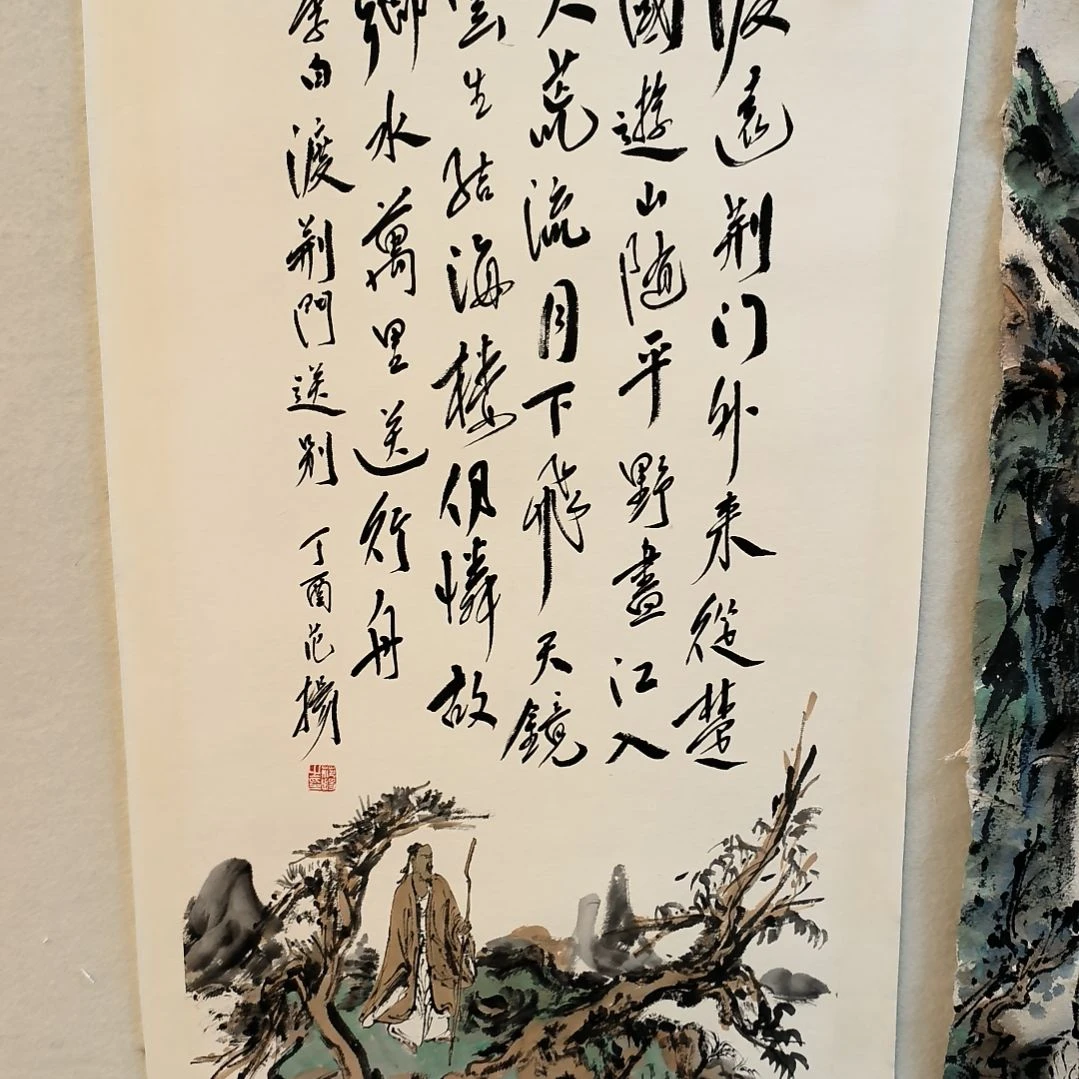 渡遠荆门外来從楚
國遊山随平野盡江入
大荒流月下飛天鏡
雲生结海樓仍憐故
鄉水萬里送行舟
李白渡荆門送别 丁酉范揚